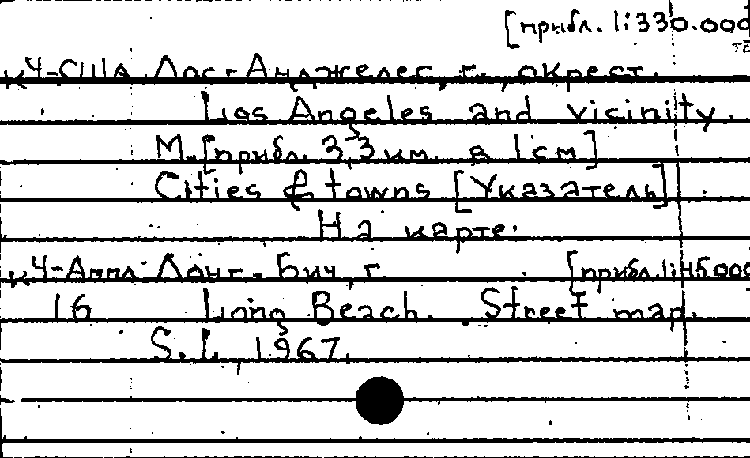 [прибл. 1:330.000
к Ч-США Лос-Анджелес, г., окрест.
Los Angeles and vicinity.
М. [прибл. 3,3 км. в 1 см]
Cities & towns [Указатель].
На карте.
к Ч-Аппл Лонг-Бич, г. [прибл. 1:45000
16 Long Beach. Street map.
S. L., 1967.